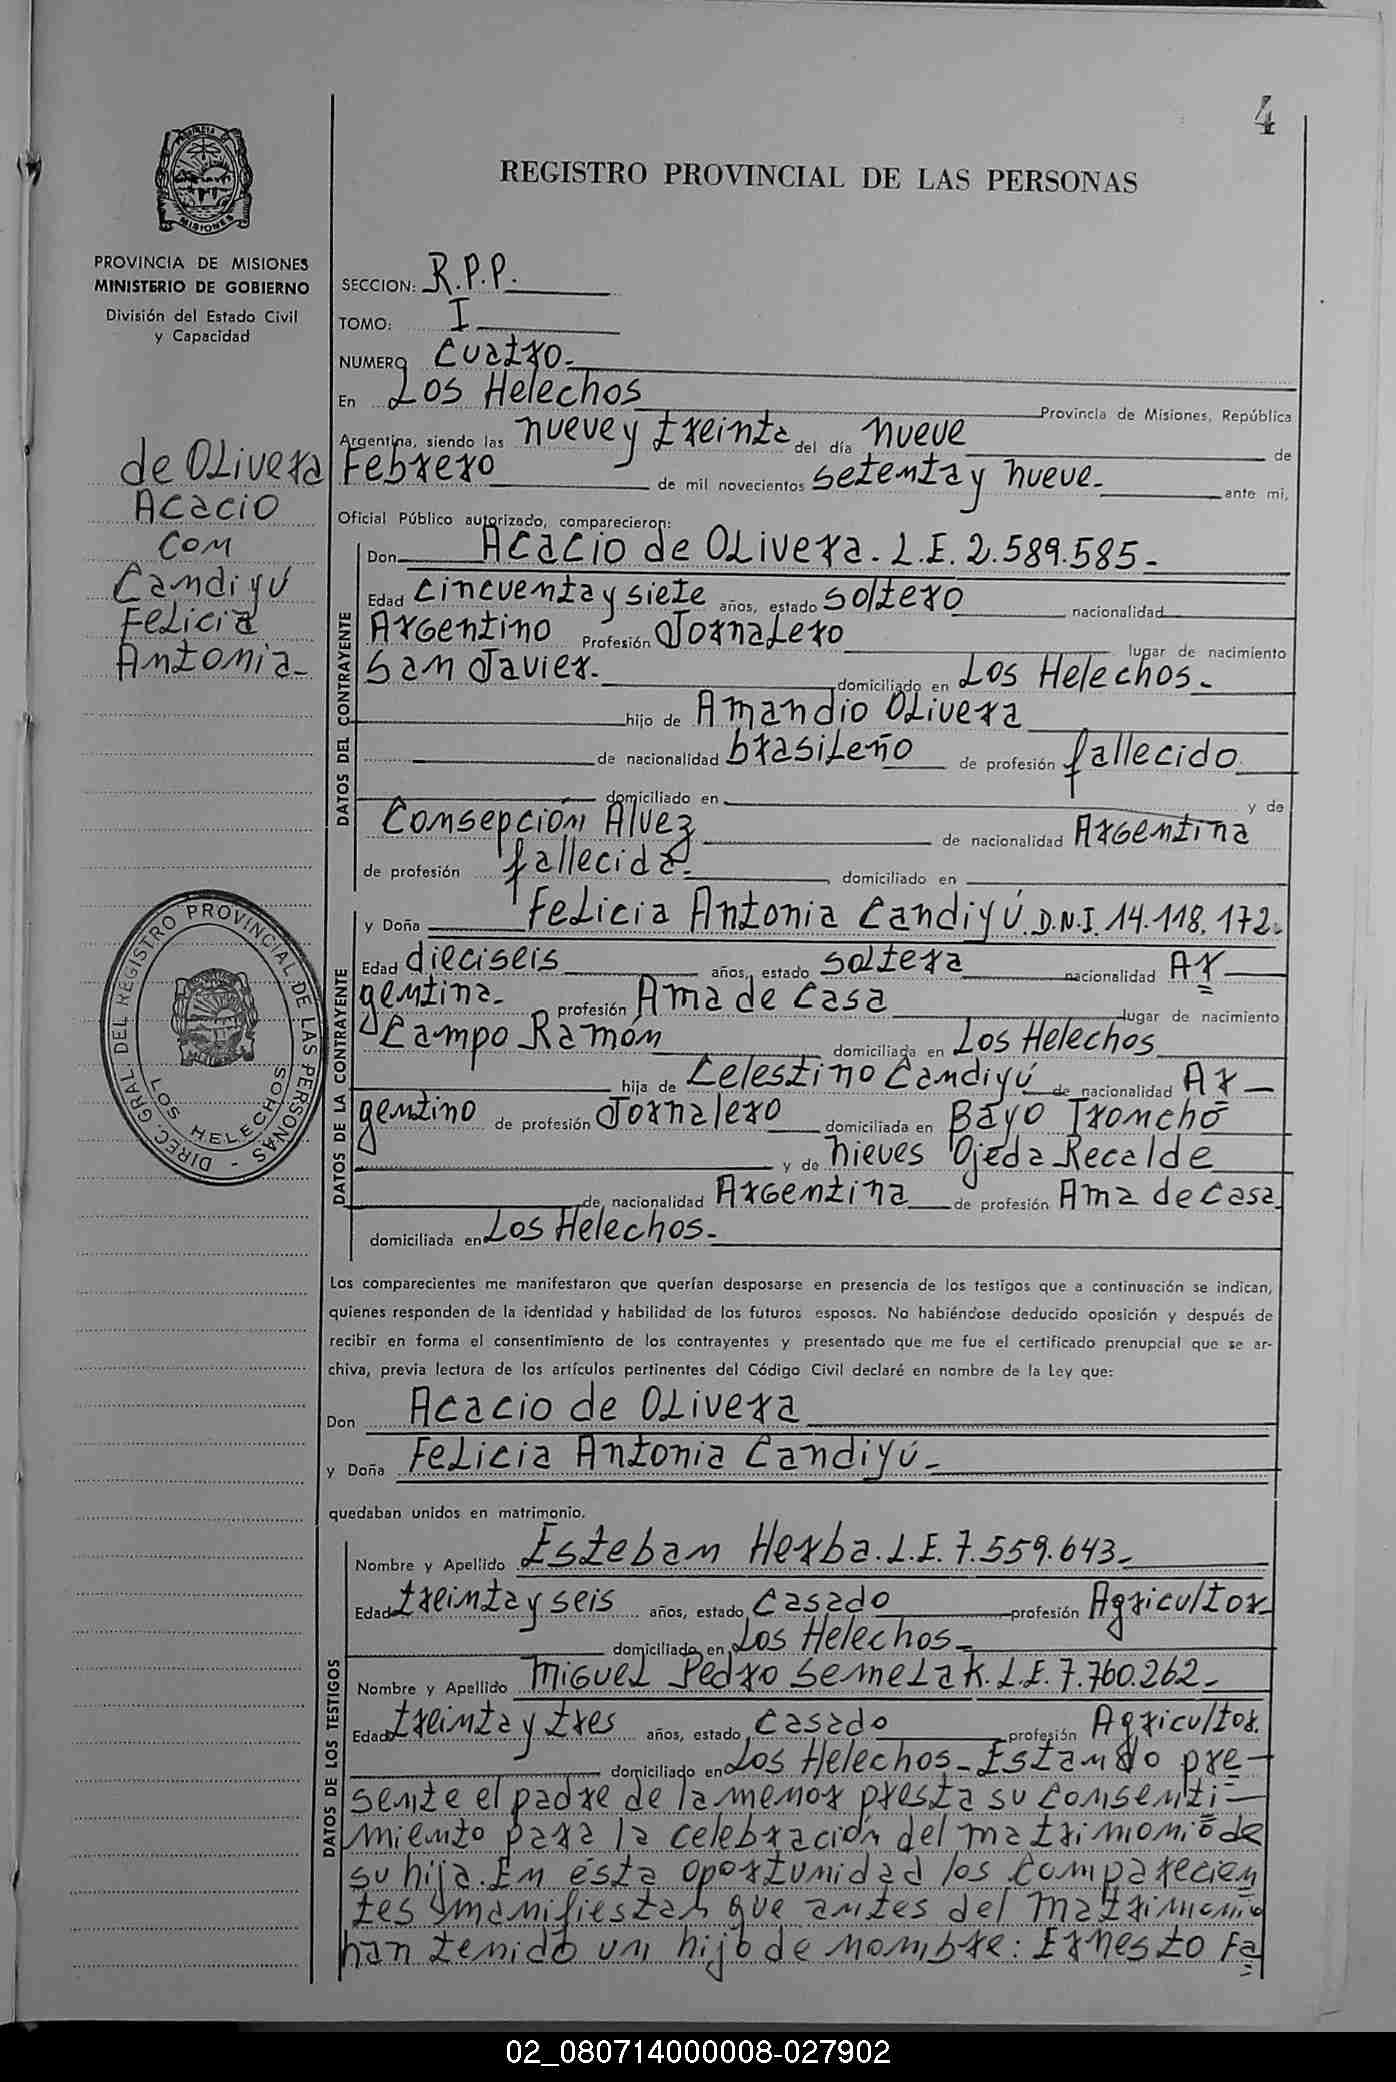 4
REGISTRO PROVINCIAL DE LAS PERSONAS
PROVINCIA DE MISIONES
MINISTERIO DE GOBIERNO
División del Estado Civil
y Capacidad
SECCION: R.P.P.
TOMO: I
NUMERO Cuatro.
En Los Helechos Provincia de Misiones, República
Argentina, siendo las nueve y treinta del día nueve de
Febrero de mil novecientos setenta y nueve. ante mi,
Oficial Público autorizado, comparecieron:
de Olivera
Acacio
con
Candiyú
Felicia
Antonia
DATOS DEL CONTRAYENTE
Don Acacio de Olivera. L.E. 2.589.585
Edad cincuenta y siete años, estado soltero nacionalidad
Argentino Profesión Jornalero lugar de nacimiento
San Javier. domiciliado en Los Helechos.
hijo de Amandio Olivera
de nacionalidad brasileño de profesión fallecido
domiciliado en y de
Consepción Alvez de nacionalidad Argentina
de profesión fallecida. domiciliado en
DATOS DE LA CONTRAYENTE
y Doña Felicia Antonia Candiyú. D.N.I. 14.118.172.
Edad dieciseis años, estado soltera nacionalidad Ar
gentina. profesión Ama de Casa lugar de nacimiento
Campo Ramón domiciliada en Los Helechos
hija de Celestino Candiyú de nacionalidad Ar
gentino de profesión Jornalero domiciliada en Bayo Troncho
y de nieves Ojeda Recalde
de nacionalidad Argentina de profesión Ama de Casa
domiciliada en Los Helechos.
Los comparecientes me manifestaron que querían desposarse en presencia de los testigos que a continuación se indican,
quienes responden de la identidad y habilidad de los futuros esposos. No habiéndose deducido oposición y después de
recibir en forma el consentimiento de los contrayentes y presentado que me fue el certificado prenupcial que se ar-
chiva, previa lectura de los artículos pertinentes del Código Civil declaré en nombre de la Ley que:
Don Acacio de Olivera
y Doña Felicia Antonia Candiyú
quedaban unidos en matrimonio.
DATOS DE LOS TESTIGOS
Nombre y Apellido Esteban Herba. L.E. 7.559.643
Edad treinta y seis años, estado Casado profesión Agricultor
domiciliado en Los Helechos
Nombre y Apellido Miguel Pedro Semelak. L.E. 7.760.262
Edad treinta y tres años, estado Casado profesión Agricultor.
domiciliado en Los Helechos. Estando pre
sente el padre de la menor presta su consenti
miento para la celebración del matrimonio de
su hija. En ésta oportunidad los Comparecien
tes manifiestan que antes del matrimonio
han tenido un hijo de nombre: Ernesto Fa
DIREC. GRAL. DEL REGISTRO PROVINCIAL DE LAS PERSONAS
LOS HELECHOS
02_080714000008-027902